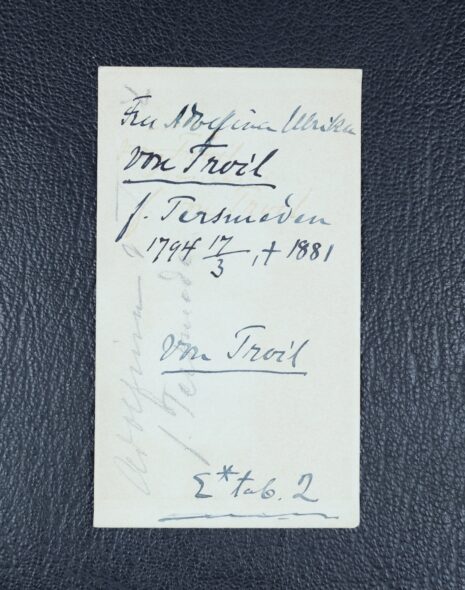 Fru Adolfina Ulrika
von Troil
f. Tersmeden
1794 17/3, + 1881
von Troil
E* tab. 2
Adolfina
f. Tersmeden